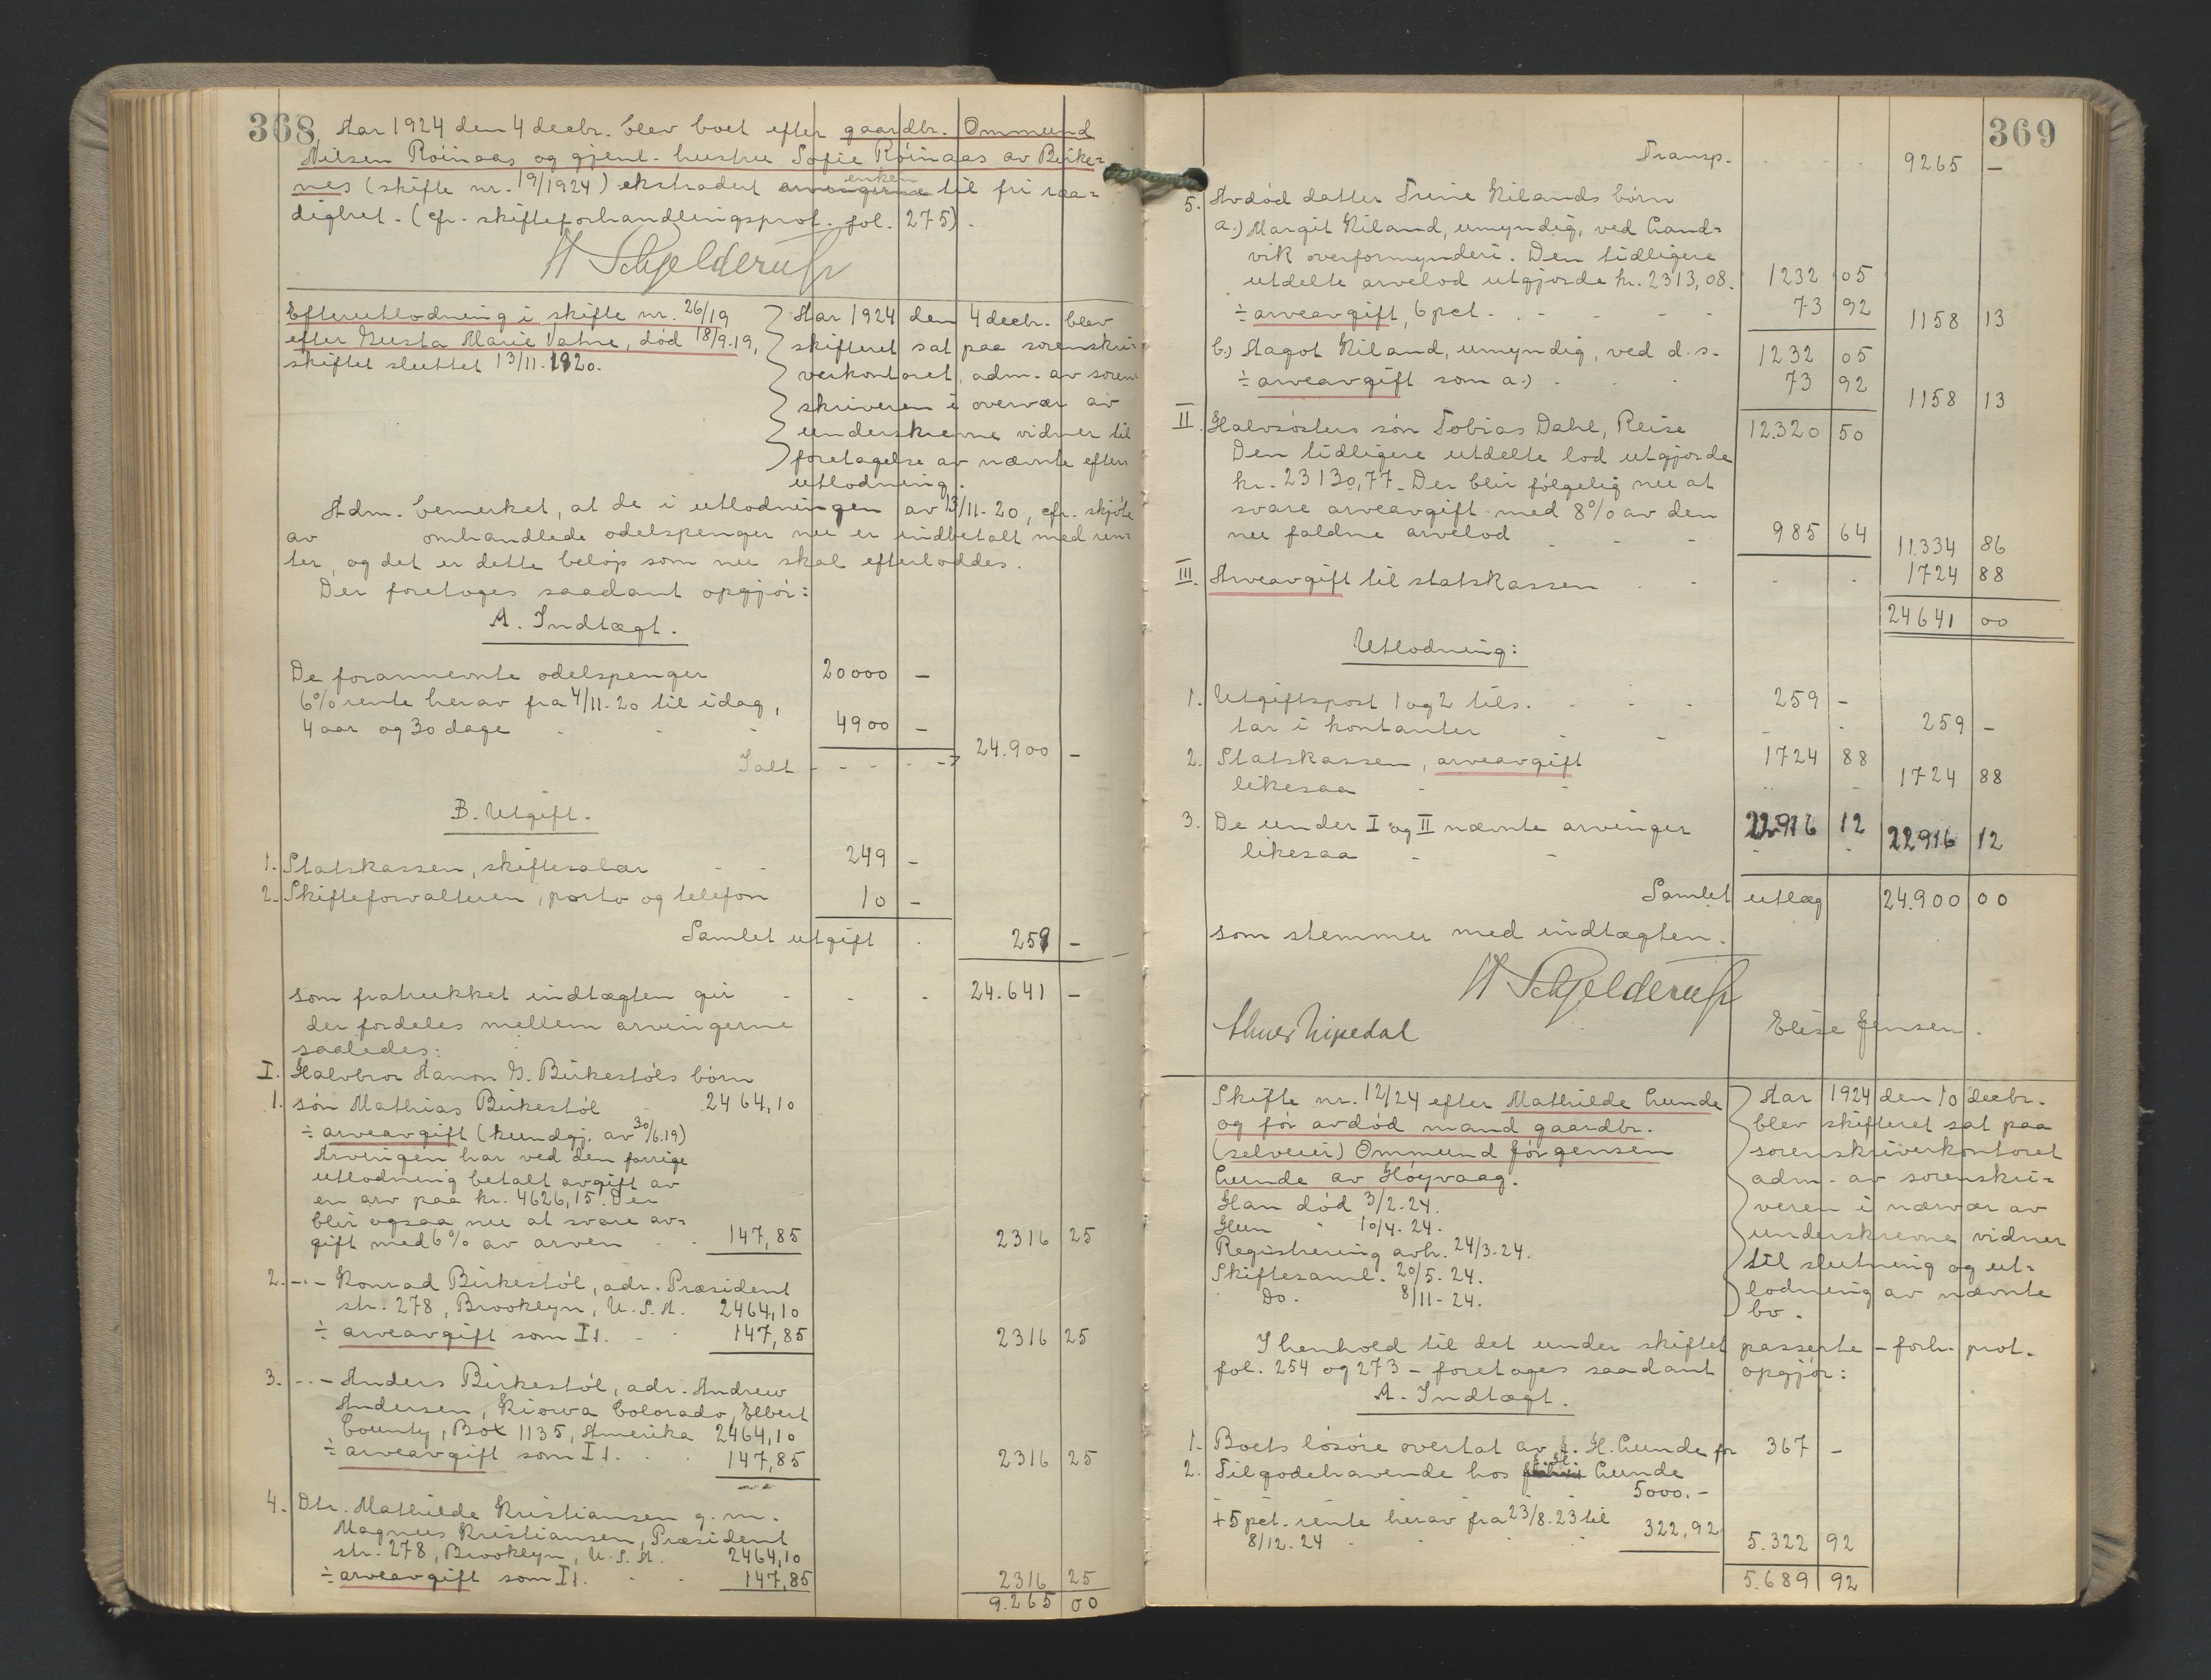 368
Aar 1924 den 4 decbr. blev boet efter gaardbr. Ommund
Nilsen Röinaas og gjenl. hustru Sofie Röinaas av Birke=
nes (skifte nr. 19/1924) ekstradert enken til fri raa=
dighet. (cfr. skifteforhandlingsprot. fol. 275).
H Schjelderup
Efterutlodning i skifte nr. 26/19
efter Gusta Marie Vatne, död 18/9.19,
skiftet sluttet 13/11.1920.
Aar 1924 den 4 decbr. blev
skifteret sat paa sorenskri=
verkontoret, adm. av soren=
skriveren i overvær av
underskrevne vidner til
foretagelse av nævnte efter=
utlodning.
Adm. bemerket, at de i utlodningen av 13/11-20, cfr. skjöte
av omhandlede odelspenger nu er indbetalt med ren=
ter, og det er dette belöp som nu skal efterloddes.
Der foretoges saadant opgjör:
A. Indtægt.
De forannevnte odelspenger 20000 —
6% rente herav fra 4/11-20 til idag,
4 aar og 30 dage 4900 —
Ialt 24.900 —
B. Utgift.
1. Statskassen, skiftesalær 249 —
2. Skifteforvalteren, porto og telefon 10 —
Samlet utgift 259 —
som fratrukket indtægten gir 24.641 —
der fordeles mellem arvingerne
saaledes:
I. Halvbror Aanon G. Birkestöls börn
1. sön Mathias Birkestöl 2464,10
÷ arveavgift (kundgj. av 30/6.19)
Arvingen har ved den forrige
utlodning betalt avgift av
en arv paa kr. 4626,15. Der
blir ogsaa nu at svare av=
gift med 6% av arven 147,85 2316 25
2. -"- Konrad Birkestöl, adr. Præsident
str. 278, Brooklyn, U.S.A. 2464,10
÷ arveavgift som I 1. 147,85 2316 25
3. -"- Anders Birkestöl, adr. Andrew
Andersen, Kiowa Colorado, Elbert
County, Box 1135, Amerika 2464,10
÷ arveavgift som I 1. 147,85 2316 25
4. Dtr. Mathilde Kristiansen g. m.
Magnus Kristiansen, Præsident
str. 278, Brooklyn, U.S.A. 2464,10
÷ arveavgift som I 1. 147,85 2316 25
9.265 00
369
Transp. 9265 —
5. Avdöd datter Trine Kilands börn
a.) Margit Kiland, umyndig, ved Land=
vik overformynderi. Den tidligere
utdelte arvelod utgjorde kr. 2313,08. 1232 05
÷ arveavgift, 6 pct. 73 92 1158 13
b.) Aagot Kiland, umyndig, ved d. s. 1232 05
÷ arveavgift som a.) 73 92 1158 13
II. Halvsösters sön Tobias Dahl, Reise 12.320 50
Den tidligere utdelte lod utgjorde
kr. 23130,77. Der blir fölgelig nu at
svare arveavgift med 8% av den
nu faldne arvelod 985 64 11.334 86
III. Arveavgift til statskassen 1724 88
24641 00
Utlodning:
1. Utgiftspost 1 og 2 tils. 259 —
tar i kontanter 259 —
2. Statskassen, arveavgift 1724 88
likesaa 1724 88
3. De under I og II nævnte arvinger 22916 12
likesaa 22916 12
Samlet utlæg 24.900 00
som stemmer med indtægten.
H Schjelderup
Nipedal
Elise Jensen.
Skifte nr. 12/24 efter Mathilde Lunde
og för avdöd mand gaardbr.
(selveier) Ommund Jörgensen
Lunde av Höyvaag.
Han död 3/2.24.
Hun " 10/4.24.
Registrering avh. 24/3.24.
Skiftesaml. 20/5.24.
Do. 8/11-24.
Aar 1924 den 10 decbr.
blev skifteret sat paa
sorenskriverkontoret
adm. av sorenskri=
veren i nærvær av
underskrevne vidner
til slutning og ut=
lodning av nævnte
bo.
I henhold til det under skiftet passerte – forh. prot.
fol. 254 og 273 – foretoges saadant opgjör:
A. Indtægt.
1. Boets lösöre overtat av J. H. Lunde for 367 —
2. Tilgodehavende hos Lunde
5000.-
+ 5 pct. rente herav fra 23/8.23 til
8/12.24 322,92 5.322 92
5.689 92